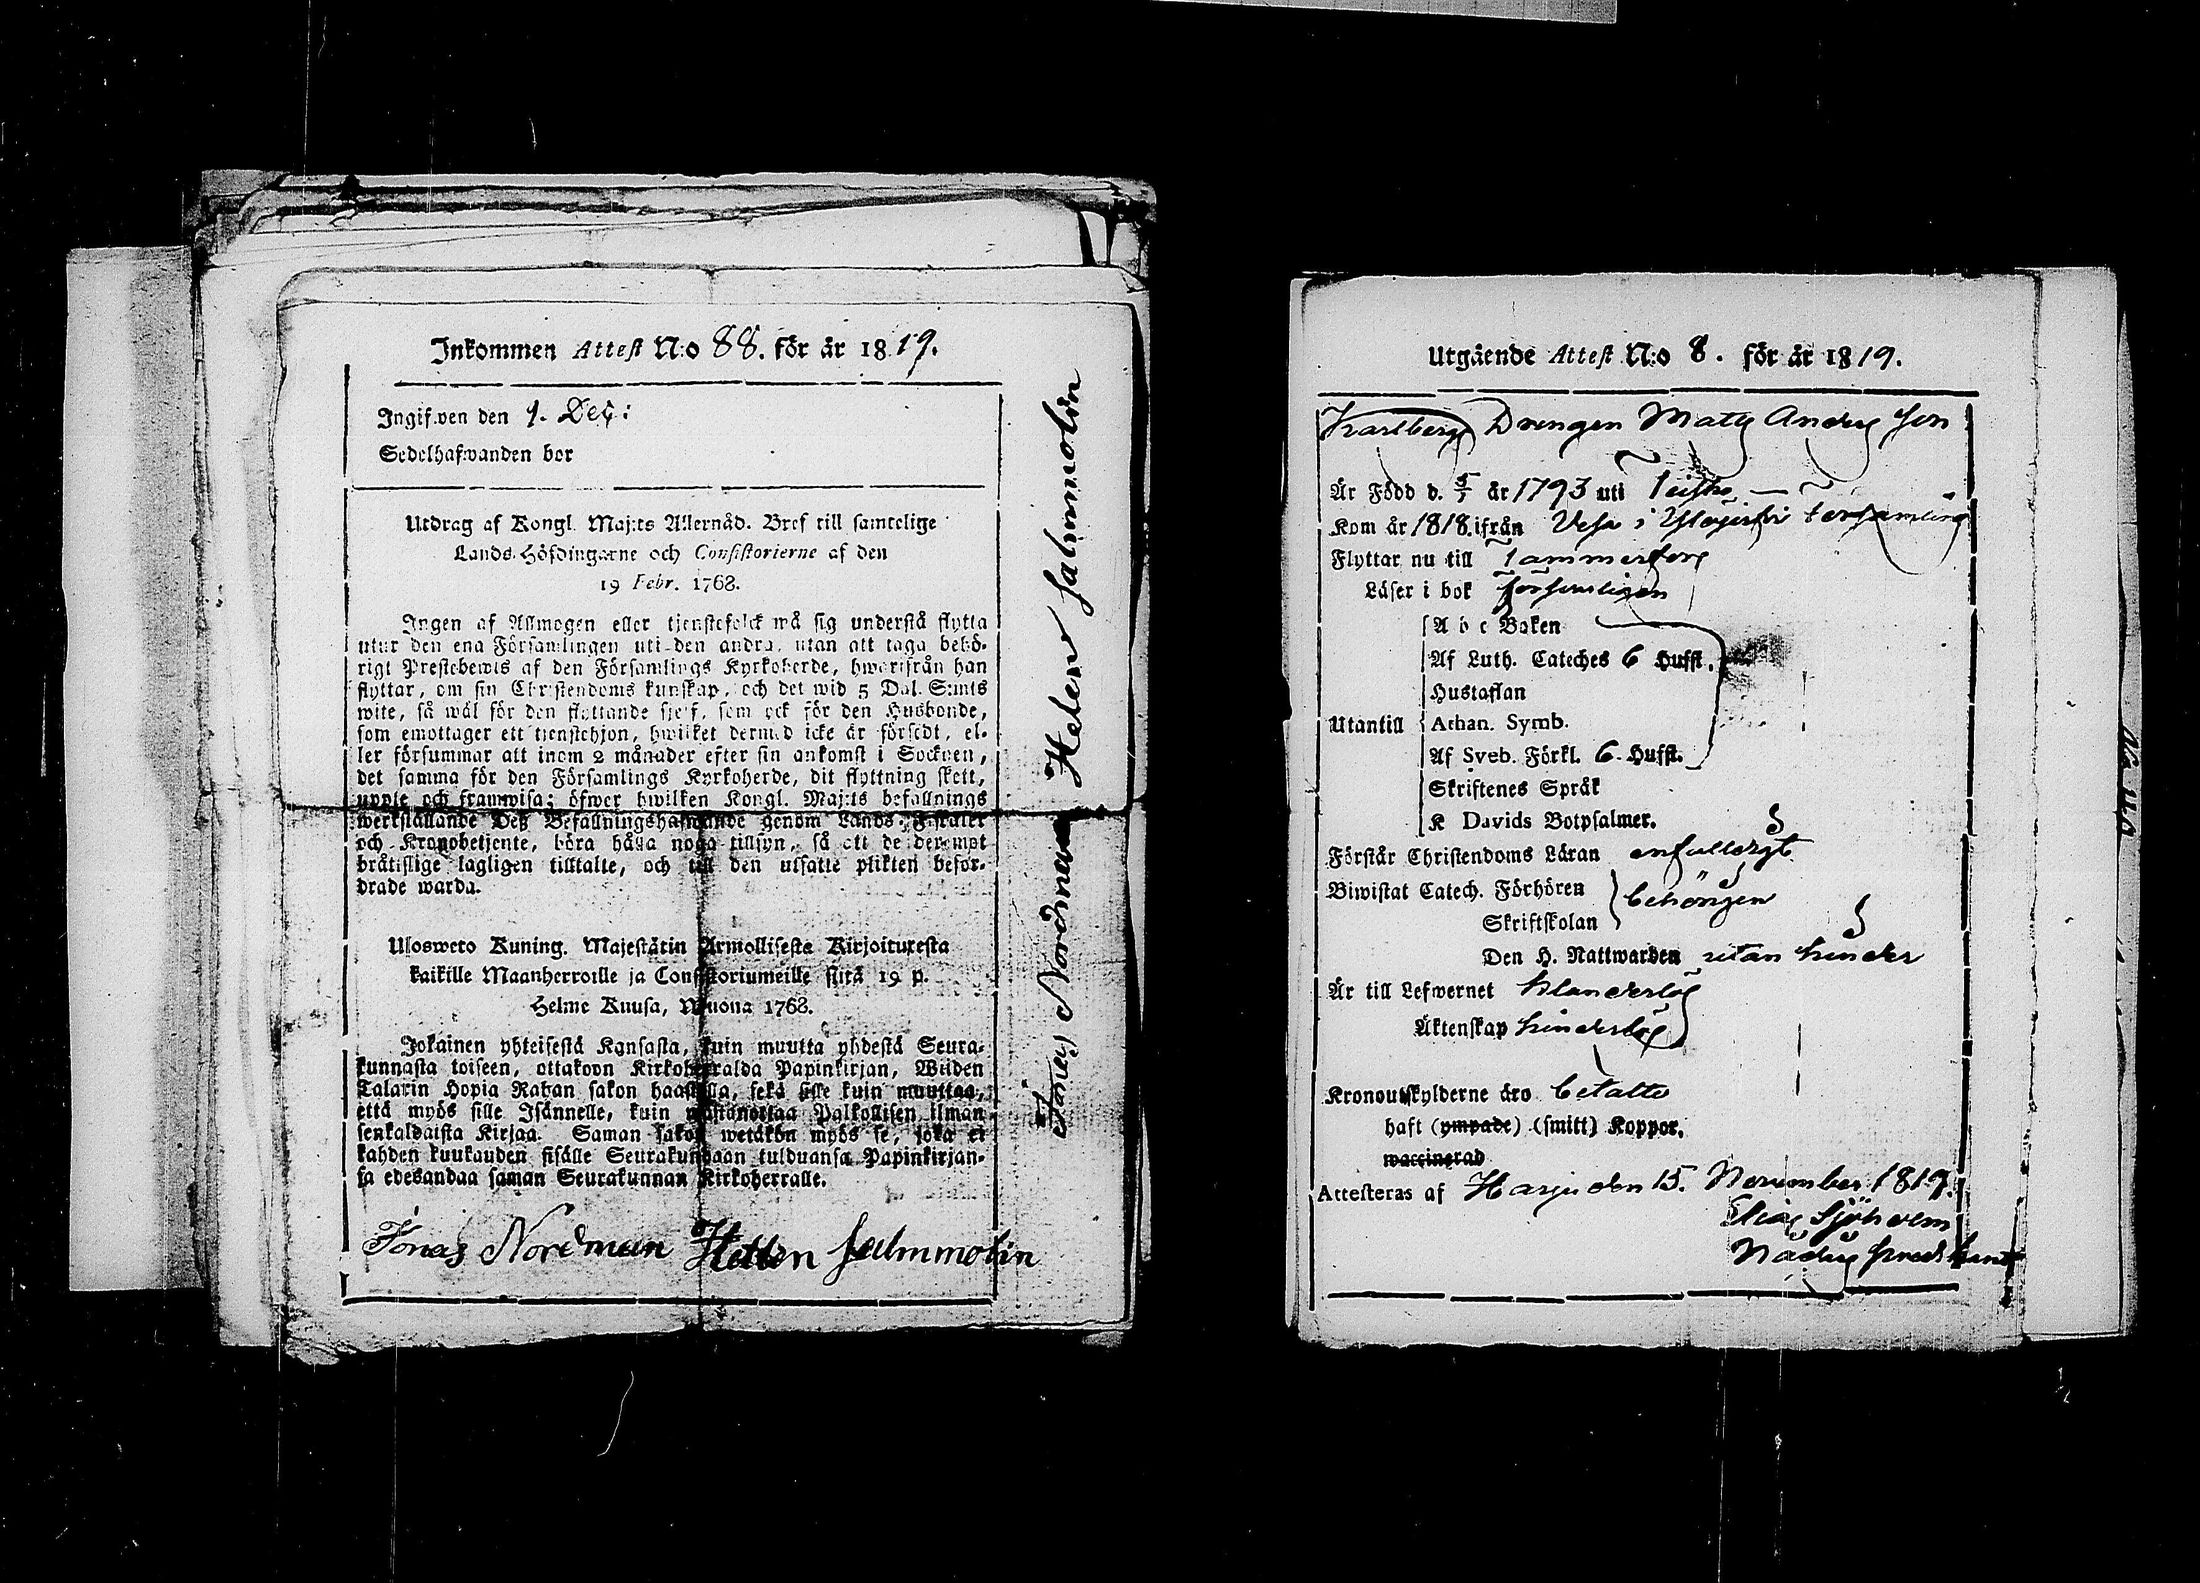 Inkommen Attest N:o 88. för år 1819.
Ingifwen den 1. Dec:
Sedelhafwanden bor
Utdrag af Kongl. Maj:ts Allernåd. Bref till samtelige
Lands-Höfdingarne och Consistorierne af den
19 Febr. 1768.
Ingen af Allmogen eller tjenstefolck må sig understå flytta
utur den ena Församlingen uti den andra, utan att taga behö-
rigt Prestebewis af den Församlings Kyrkoherde, hwarifrån han
flyttar, om sin Christendoms kunskap, och det wid 5 Dal. S:mts
wite, så wäl för den flyttande sjelf, som ock för den Husbonde,
som emottager ett tienstehjon, hwilket dermed icke är försedt, el-
ler försummar att inom 2 månader efter sin ankomst i Socknen,
det samma för den Församlings Kyrkoherde, dit flyttning skett,
uppte och framwisa; öfwer hwilken Kongl. Maj:ts befallnings
werkställande Deß Befallningshafwande genom Lands-Fiskaler
och Kronobetjente, böra hålla noga tillsyn, så att de deremot
bråtislige lagligen tilltalte, och till den utsatte plikten befor-
drade warda.
Ulosweto Kuning. Majestätin Armollisesta Kirjoituxesta
kaikille Maanherroille ja Consistoriumeille siitä 19 p.
Helme Kuusa, Wuona 1768.
Jokainen yhteisestä Kansasta, kuin muutta yhdestä Seura-
kunnasta toiseen, ottakoon Kirkoherralda Papinkirjan, Wiiden
Talarin Hopia Rahan sakon haastolla, sekä sille kuin muuttaa,
että myös sille Isännelle, kuin wastanottaa Palkollisen ilman
senkaldaista Kirjaa. Saman sakon wetäkön myös se, joka ei
kahden kuukauden sisälle Seurakundaan tulduansa Papinkirjan-
sa edesandaa saman Seurakunnan Kirkoherralle.
Jonas Nordman Helen Salmmolin
Jonas Nordman Helen Salmmolin
Utgående Attest N:o 8. för år 1819.
Karlberg Drengen Mats Anders son
Är Född d. 5/1 år 1793 uti Teisko
Kom år 1818. ifrån Vesa i Ylöjärvi Församling
Flyttar nu till Tammerfors
Läser i bok försvarligen
A b c Boken
Af Luth. Cateches 6 Hufst.
Hustaflan
Utantill Athan. Symb.
Af Sveb. Förkl. 6. Hufst.
Skriftenes Språk
K Davids Botpsalmer.
Förstår Christendoms Läran enfalldigt
Biwistat Catech. Förhören behörigen
Skriftskolan
Den H. Nattwarden utan hinder
Är till Lefwernet klanderlös
Äktenskap hinderlös
Kronoutskylderne äro betalte
haft (ympade) (smitt) Koppor.
waccinerad
Attesteras af Harju den 15. November 1819.
Elias Sjöholm